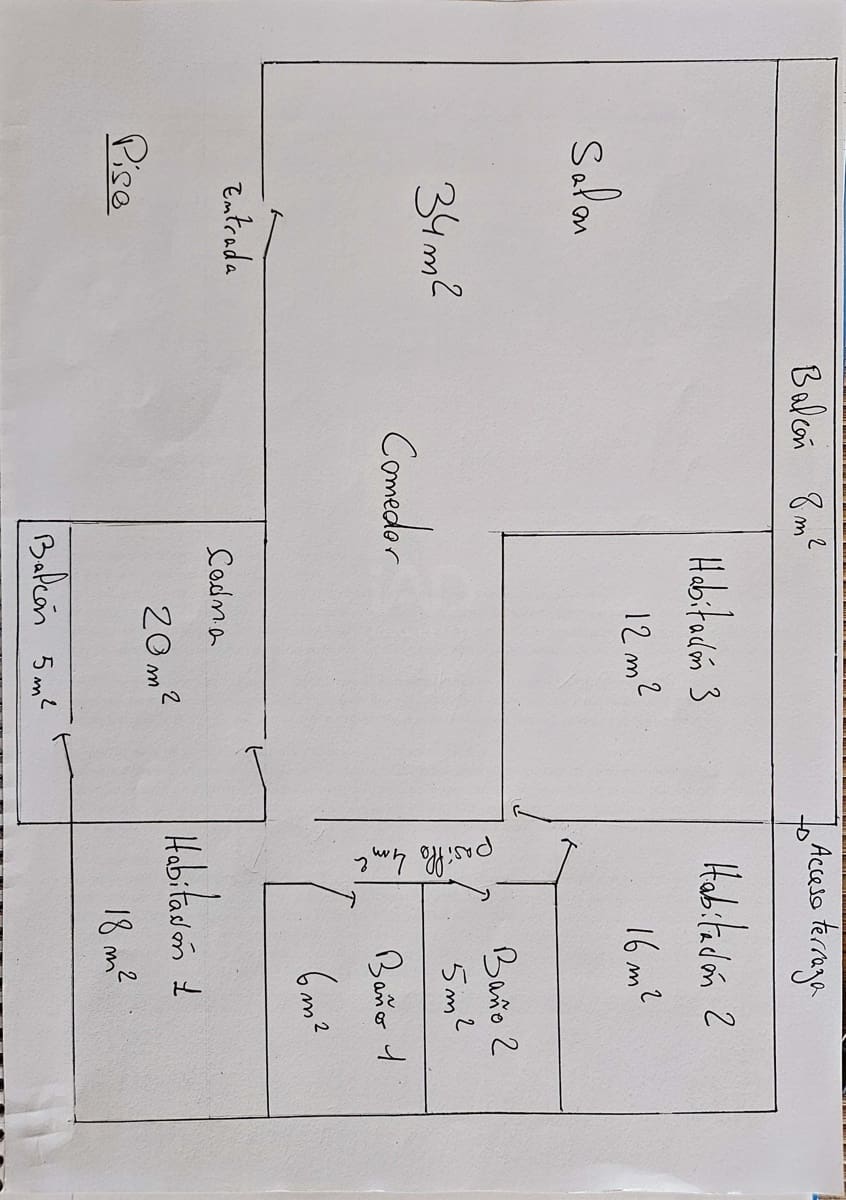 Balcón 8 m²
Acceso terraza
Salon
Habitación 3
12 m²
Habitación 2
16 m²
34 m²
Comedor
Pasillo
4 m²
Baño 2
5 m²
Baño 1
6 m²
Entrada
Cocina
20 m²
Habitación 1
18 m²
Piso
Balcón 5 m²